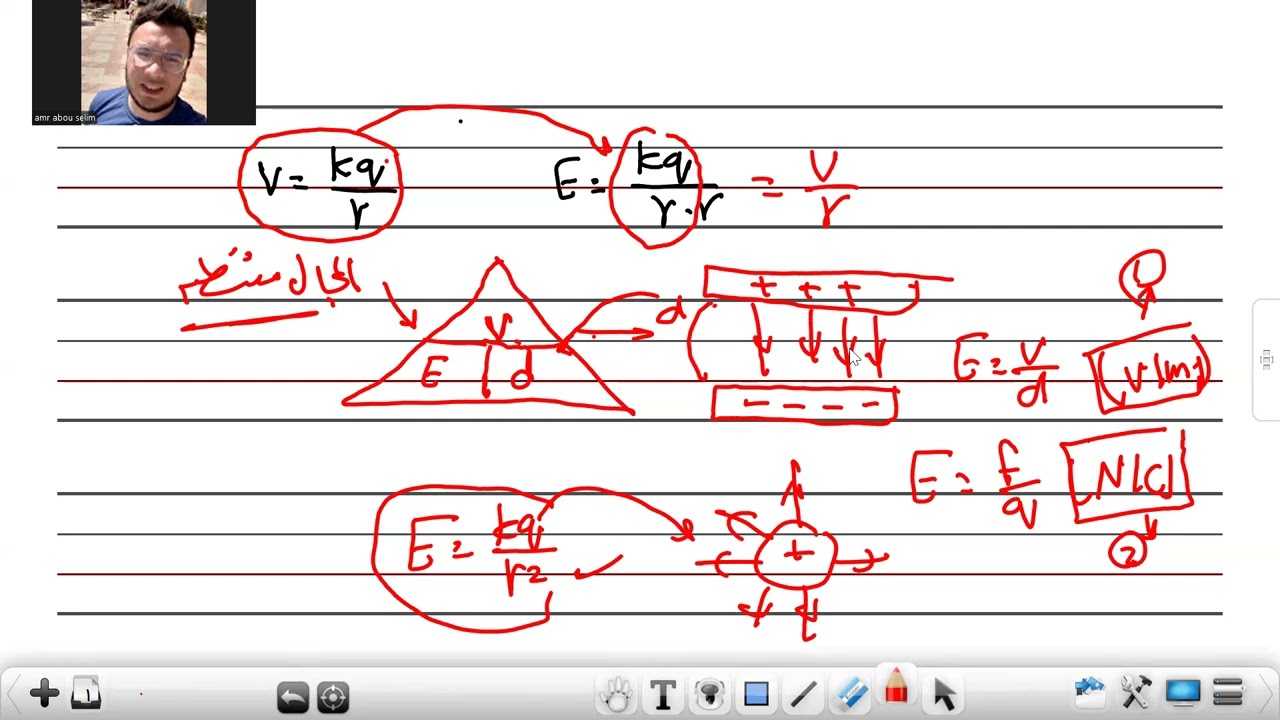 amr abou selim
V = kq/r
E = kq/r.r = V/r
المجال منتظم
V
E d
d
+ + +
- - - -
E = V/d (V/m)
1
E = kq/r2
+
E = f/q N/C
2
T
1